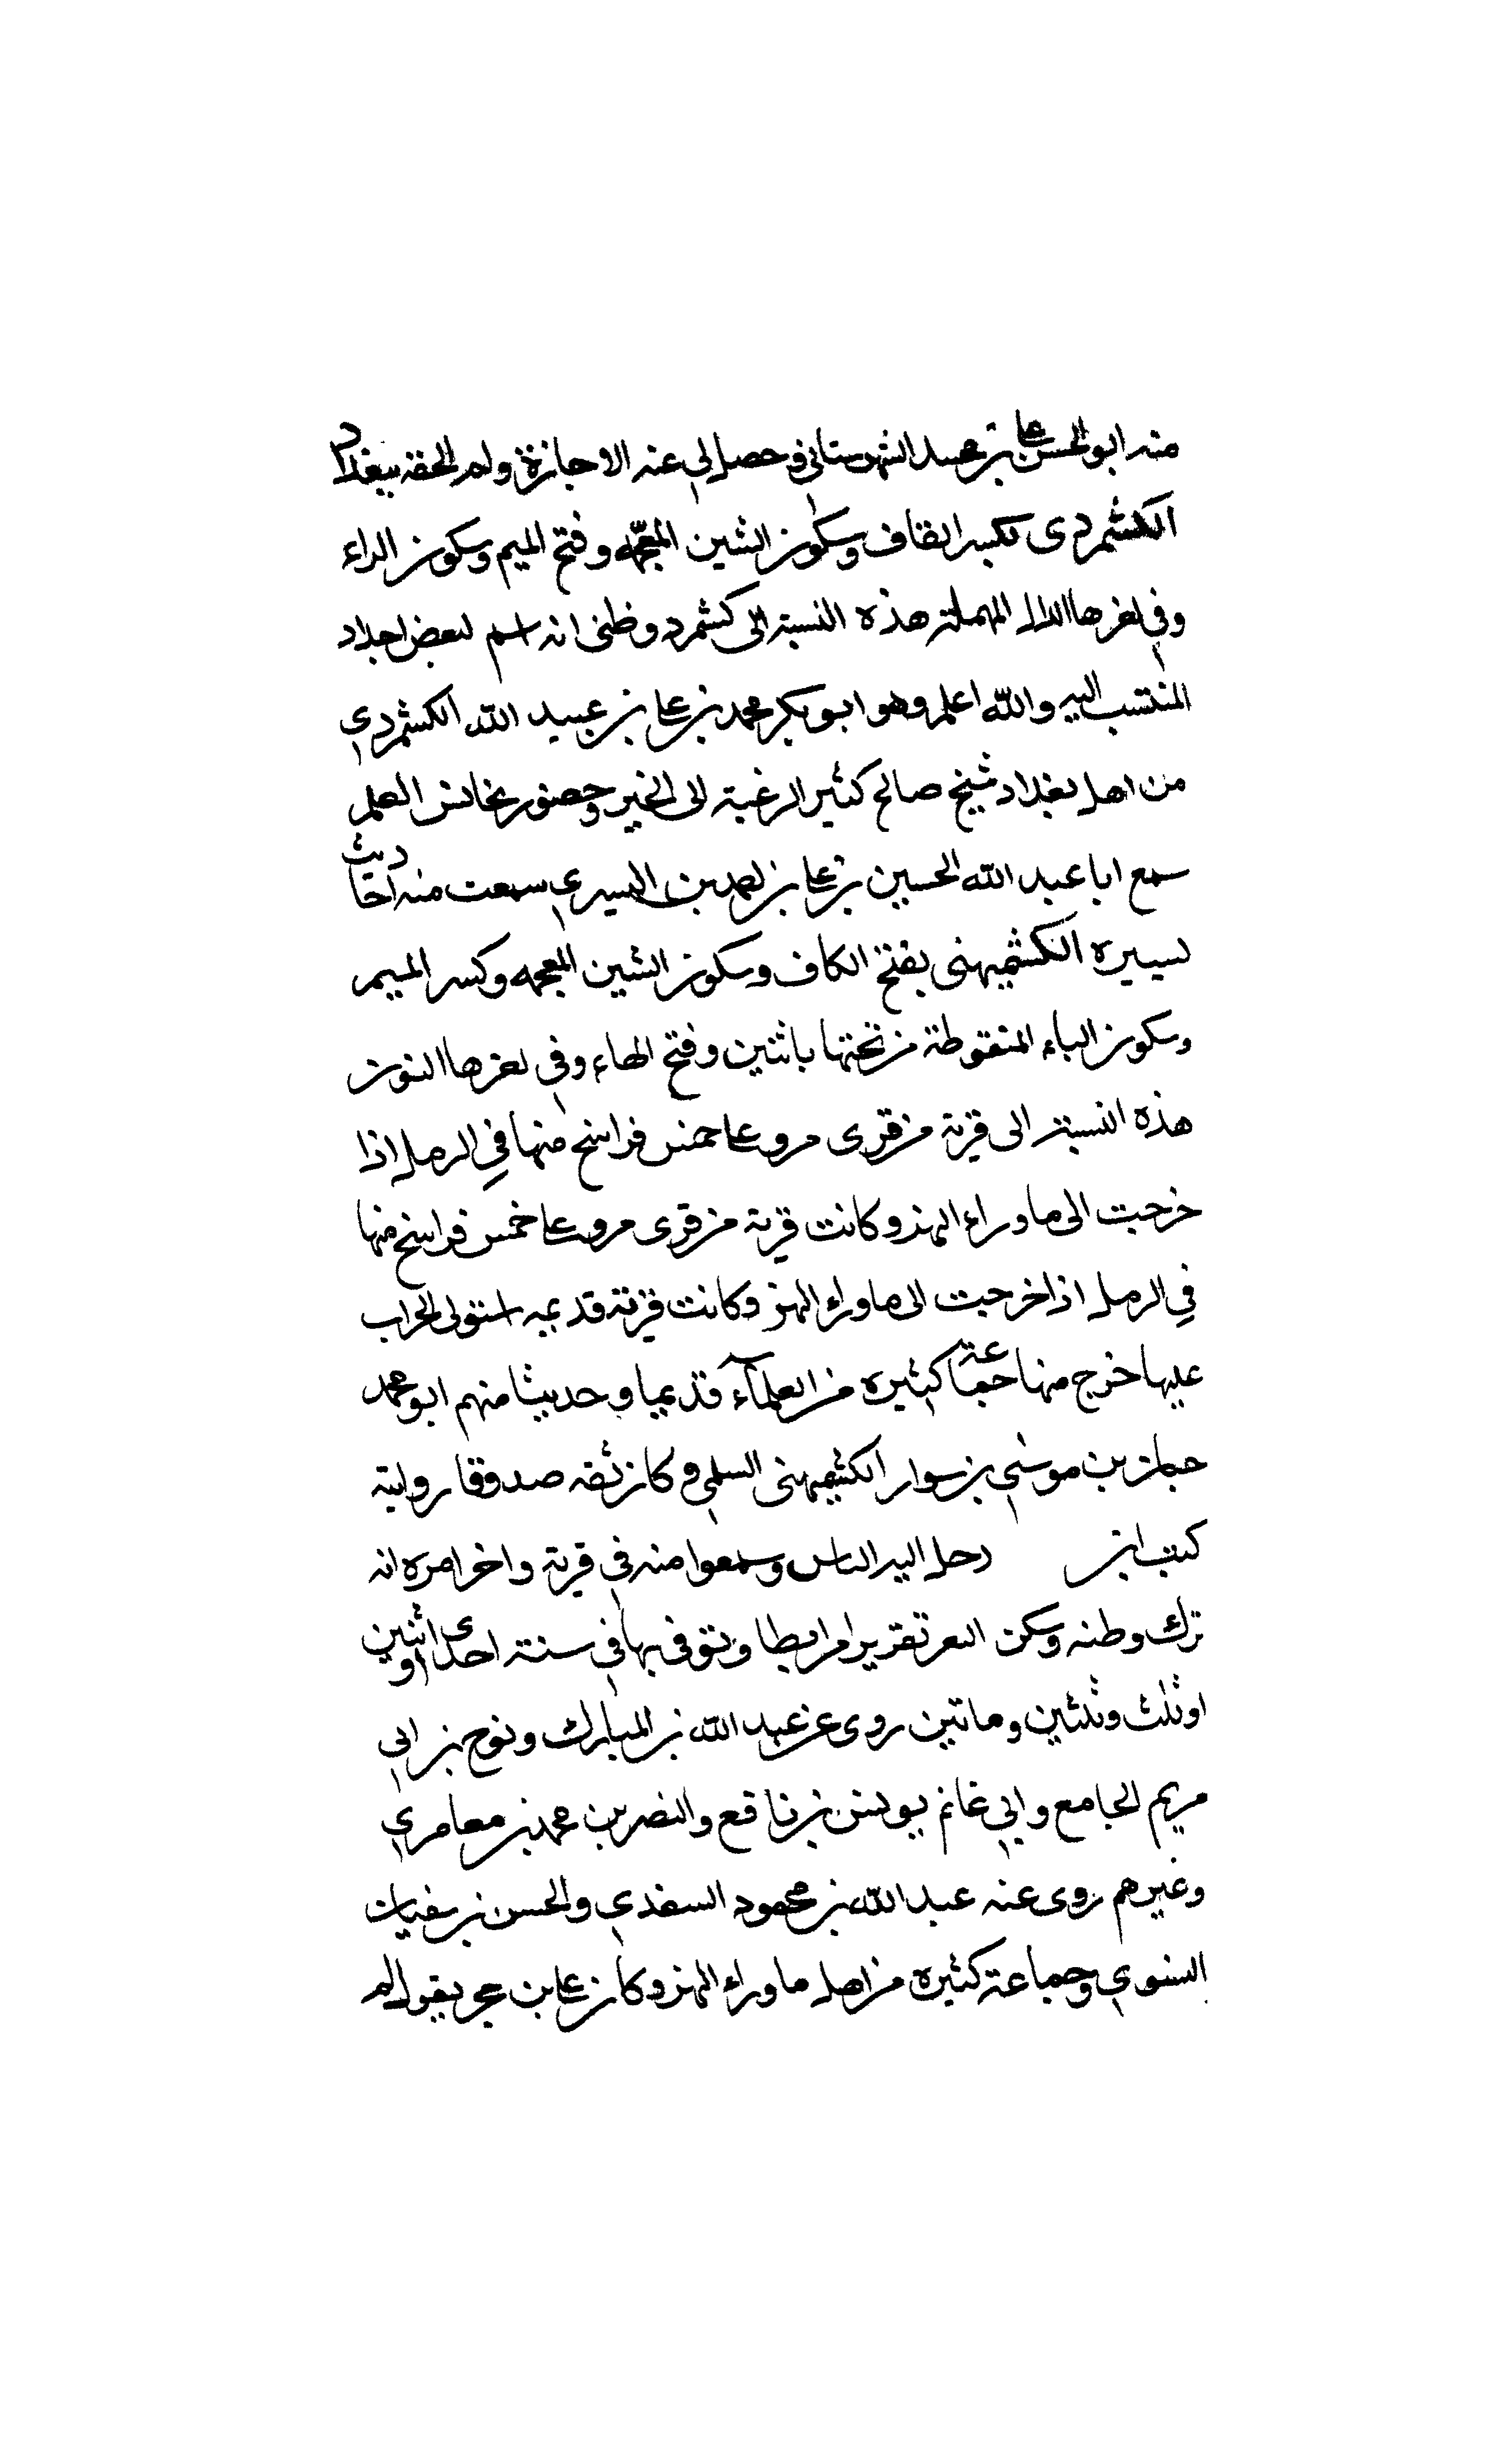 منه ابو الحسن علي بن محمد الشهرستاني وحصل لي عنه الاجازة ولم الحقه ببغداد
الكشمردى بكسر القاف وسكون الشين المعجمه وفتح الميم وسكون الراء
وفي اخرها الدال المهملة هذه النسبة الى كشمرد وظنى انه اسم لبعض اجداد
المنتسب اليه والله اعلم وهو ابو بكر محمد بن علي بن عبيد الله الكشمردي
من اهل بغداد شيخ صالح كثير الرغبة الى الخير وحضور مجالس العلم
سمع ابا عبد الله الحسين بن علي بن احمد بن البسري سمعت منه احاديث
يسيره الكشميهنى بفتح الكاف وسكون الشين المعجمه وكسر الميم
وسكون الياء المنقوطة من تحتها باثنين وفتح الهاء وفي اخرها النون
هذه النسبة الى قرية من قرى مرو على خمس فراسخ منها في الرمل اذا
خرجت الى ما وراء النهر وكانت قرية من قرى مرو على خمس فراسخ منها
في الرمل اذا خرجت الى ما وراء النهر وكانت قرية قديمه استولى الخراب
عليها خرج منها جماعة كثيره من العلماء قديما وحديثا منهم ابو محمد
حبان بن موسى بن سوار الكشميهنى السلمي وكان ثقه صدوقا رواية
كتب ابن رحل اليه الناس وسمعوا منه في قرية واخر امره انه
ترك وطنه وسكن الثغر مرابطا وتوفى بها في سنة احدى او اثنين
او ثلث وثلثين ومائتين روى عن عبد الله بن المبارك ونوح بن ابي
مريم الجامع وابي غانم يونس بن نافع والنضر بن محمد بن معامري
وغيرهم روى عنه عبد الله بن محمود السغدي والحسن بن سفيان
النسوي وجماعة كثيره من اهل ما وراء النهر وكان علي بن حجر يقول لم